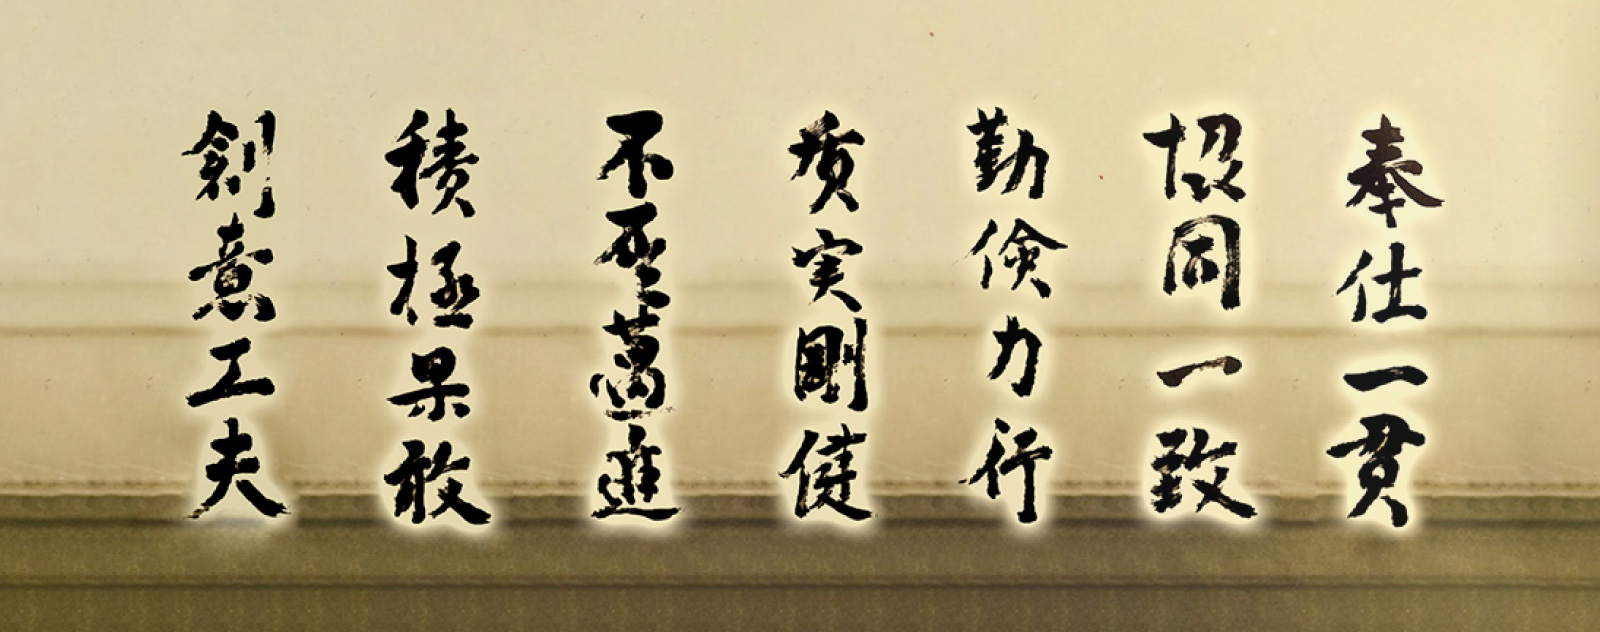 奉仕一貫
協同一致
勤倹力行
質実剛健
不屈邁進
積極果敢
創意工夫